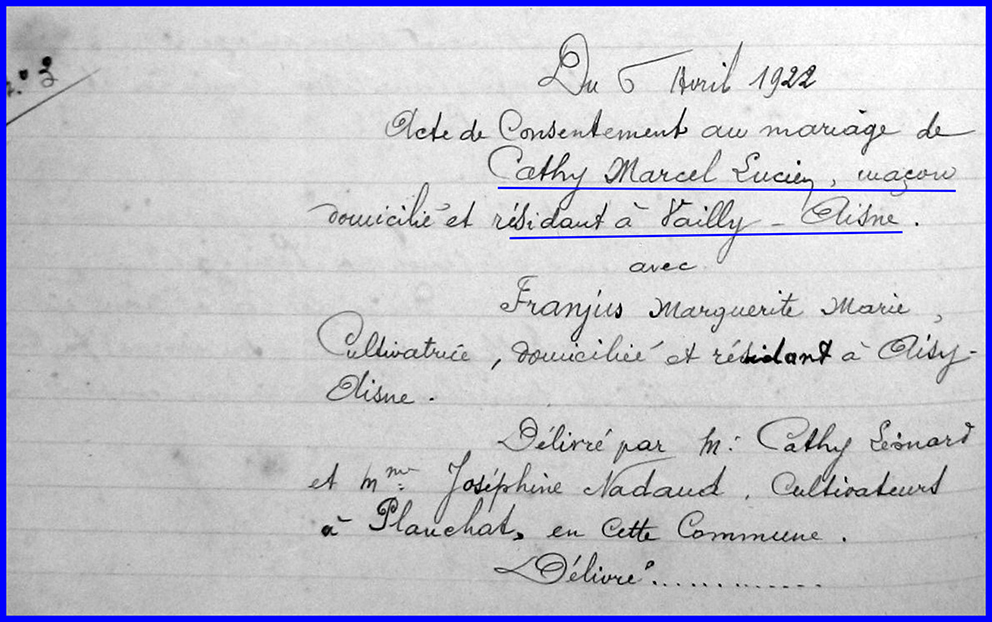 n.° 3
Du 6 Avril 1922
Acte de Consentement au mariage de
Cathy Marcel Lucien, maçon
domicilié et résidant à Vailly - Aisne.
avec
Franjus Marguerite Marie,
Cultivatrice, domiciliée et résidant à Aisy-
Aisne.
Délivré par M: Cathy Léonard
et Mme Joséphine Nadaud, Cultivateurs
à Planchat, en Cette Commune.
Délivré.............